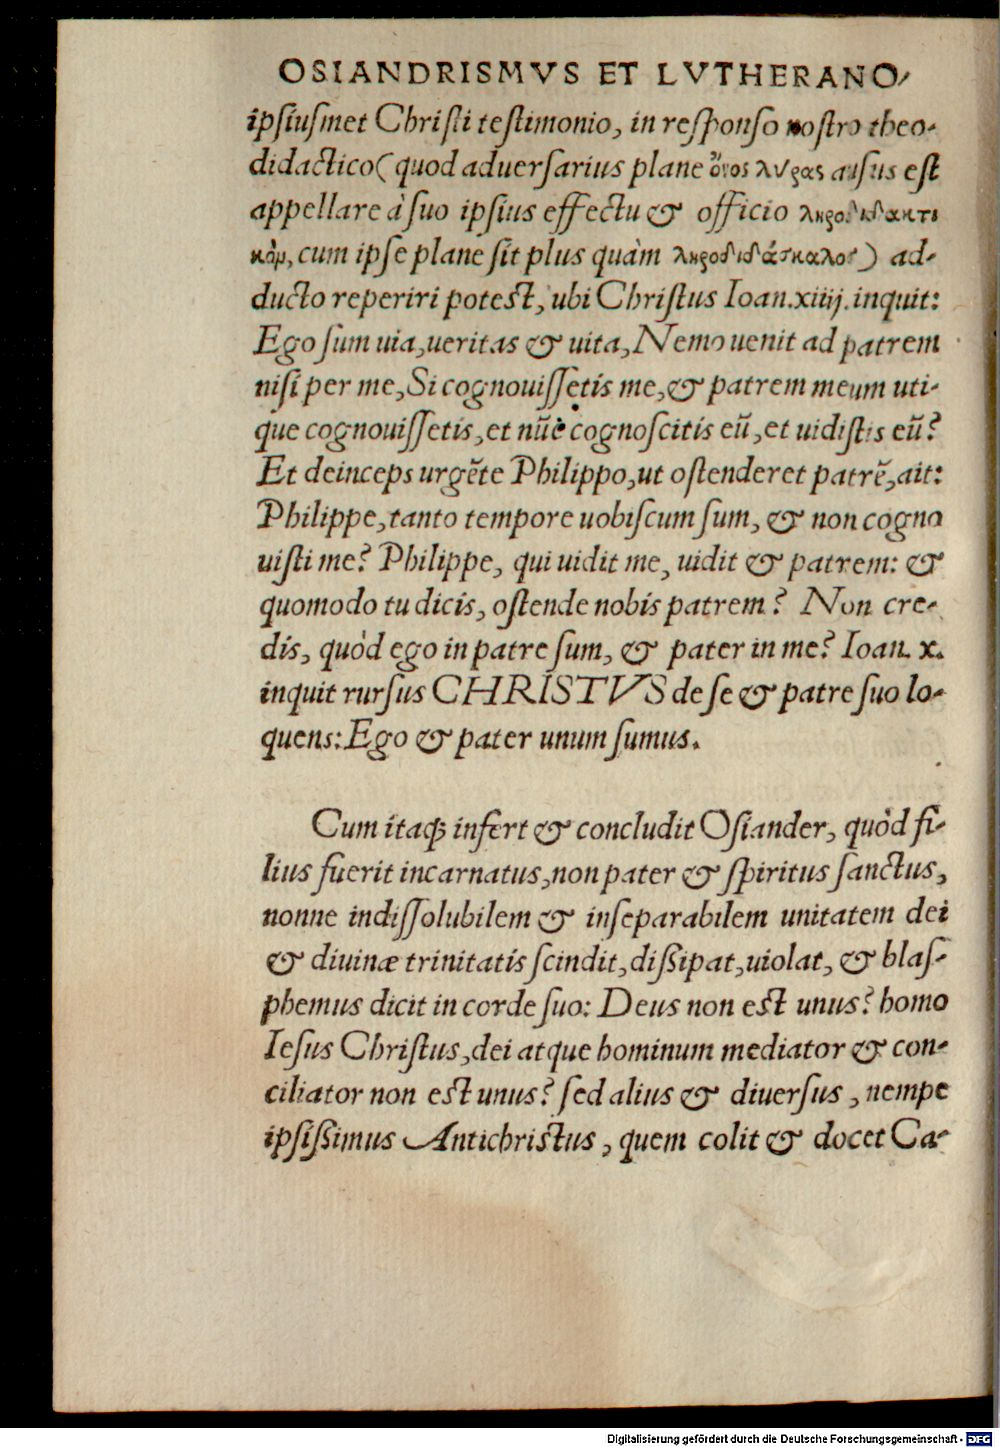 OSIANDRISMVS ET LVTHERANO-
ipsiusmet Christi testimonio, in responso nostro theo-
didactico (quod aduersarius plane ὄνος λύρας ausus est
appellare à suo ipsius effectu & officio ληροδιδακτι
κὸμ, cum ipse plane sit plus quàm ληροδιδάσκαλος) ad-
ducto reperiri potest, ubi Christus Ioan.xiiij. inquit:
Ego sum uia, ueritas & uita, Nemo uenit ad patrem
nisi per me, Si cognouissetis me, & patrem meum uti-
que cognouissetis, et nūc cognoscitis eū, et uidistis eū?
Et deinceps urgēte Philippo, ut ostenderet patrē, ait:
Philippe, tanto tempore uobiscum sum, & non cogno
uisti me? Philippe, qui uidit me, uidit & patrem: &
quomodo tu dicis, ostende nobis patrem? Non cre-
dis, quòd ego in patre sum, & pater in me? Ioan. x.
inquit rursus CHRISTVS de se & patre suo lo-
quens: Ego & pater unum sumus.
Cum itaq; infert & concludit Osiander, quòd fi-
lius fuerit incarnatus, non pater & spiritus sanctus,
nonne indissolubilem & inseparabilem unitatem dei
& diuinæ trinitatis scindit, dissipat, uiolat, & blas-
phemus dicit in corde suo: Deus non est unus? homo
Iesus Christus, dei atque hominum mediator & con-
ciliator non est unus? sed alius & diuersus, nempe
ipsissimus Antichristus, quem colit & docet Ca-
Digitalisierung gefördert durch die Deutsche Forschungsgemeinschaft - DFG